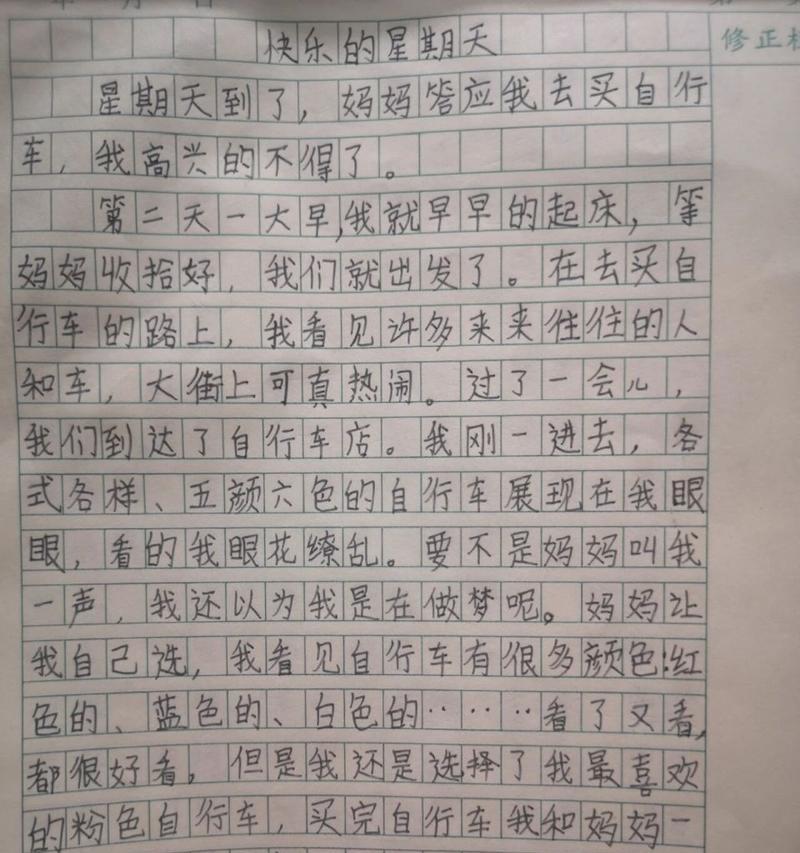 快乐的星期天
修正栏
星期天到了，妈妈答应我去买自行
车，我高兴的不得了。
第二天一大早,我就早早的起床，等
妈妈收拾好，我们就出发了。在去买自
行车的路上，我看见许多来来往往的人
和车，大街上可真热闹。过了一会儿，
我们到达了自行车店。我刚一进去，各
式各样、五颜六色的自行车展现在我眼
眼，看的我眼花缭乱。要不是妈妈叫我
一声，我还以为我是在做梦呢。妈妈让
我自己选，我看见自行车有很多颜色:红
色的、蓝色的、白色的……看了又看,
都很好看，但是我还是选择了我最喜欢
的粉色自行车，买完自行车我和妈妈一